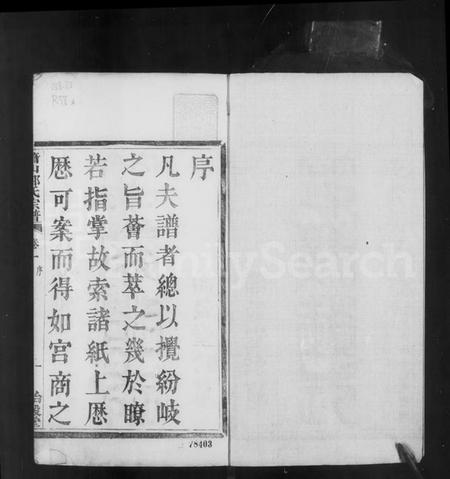 序
凡夫譜者總以攬紛岐
之旨薈而萃之幾於瞭
若指掌故索諸紙上歷
歷可案而得如宮商之
蕭山郎氏宗譜 卷一 序 一
78403
FamilySearch